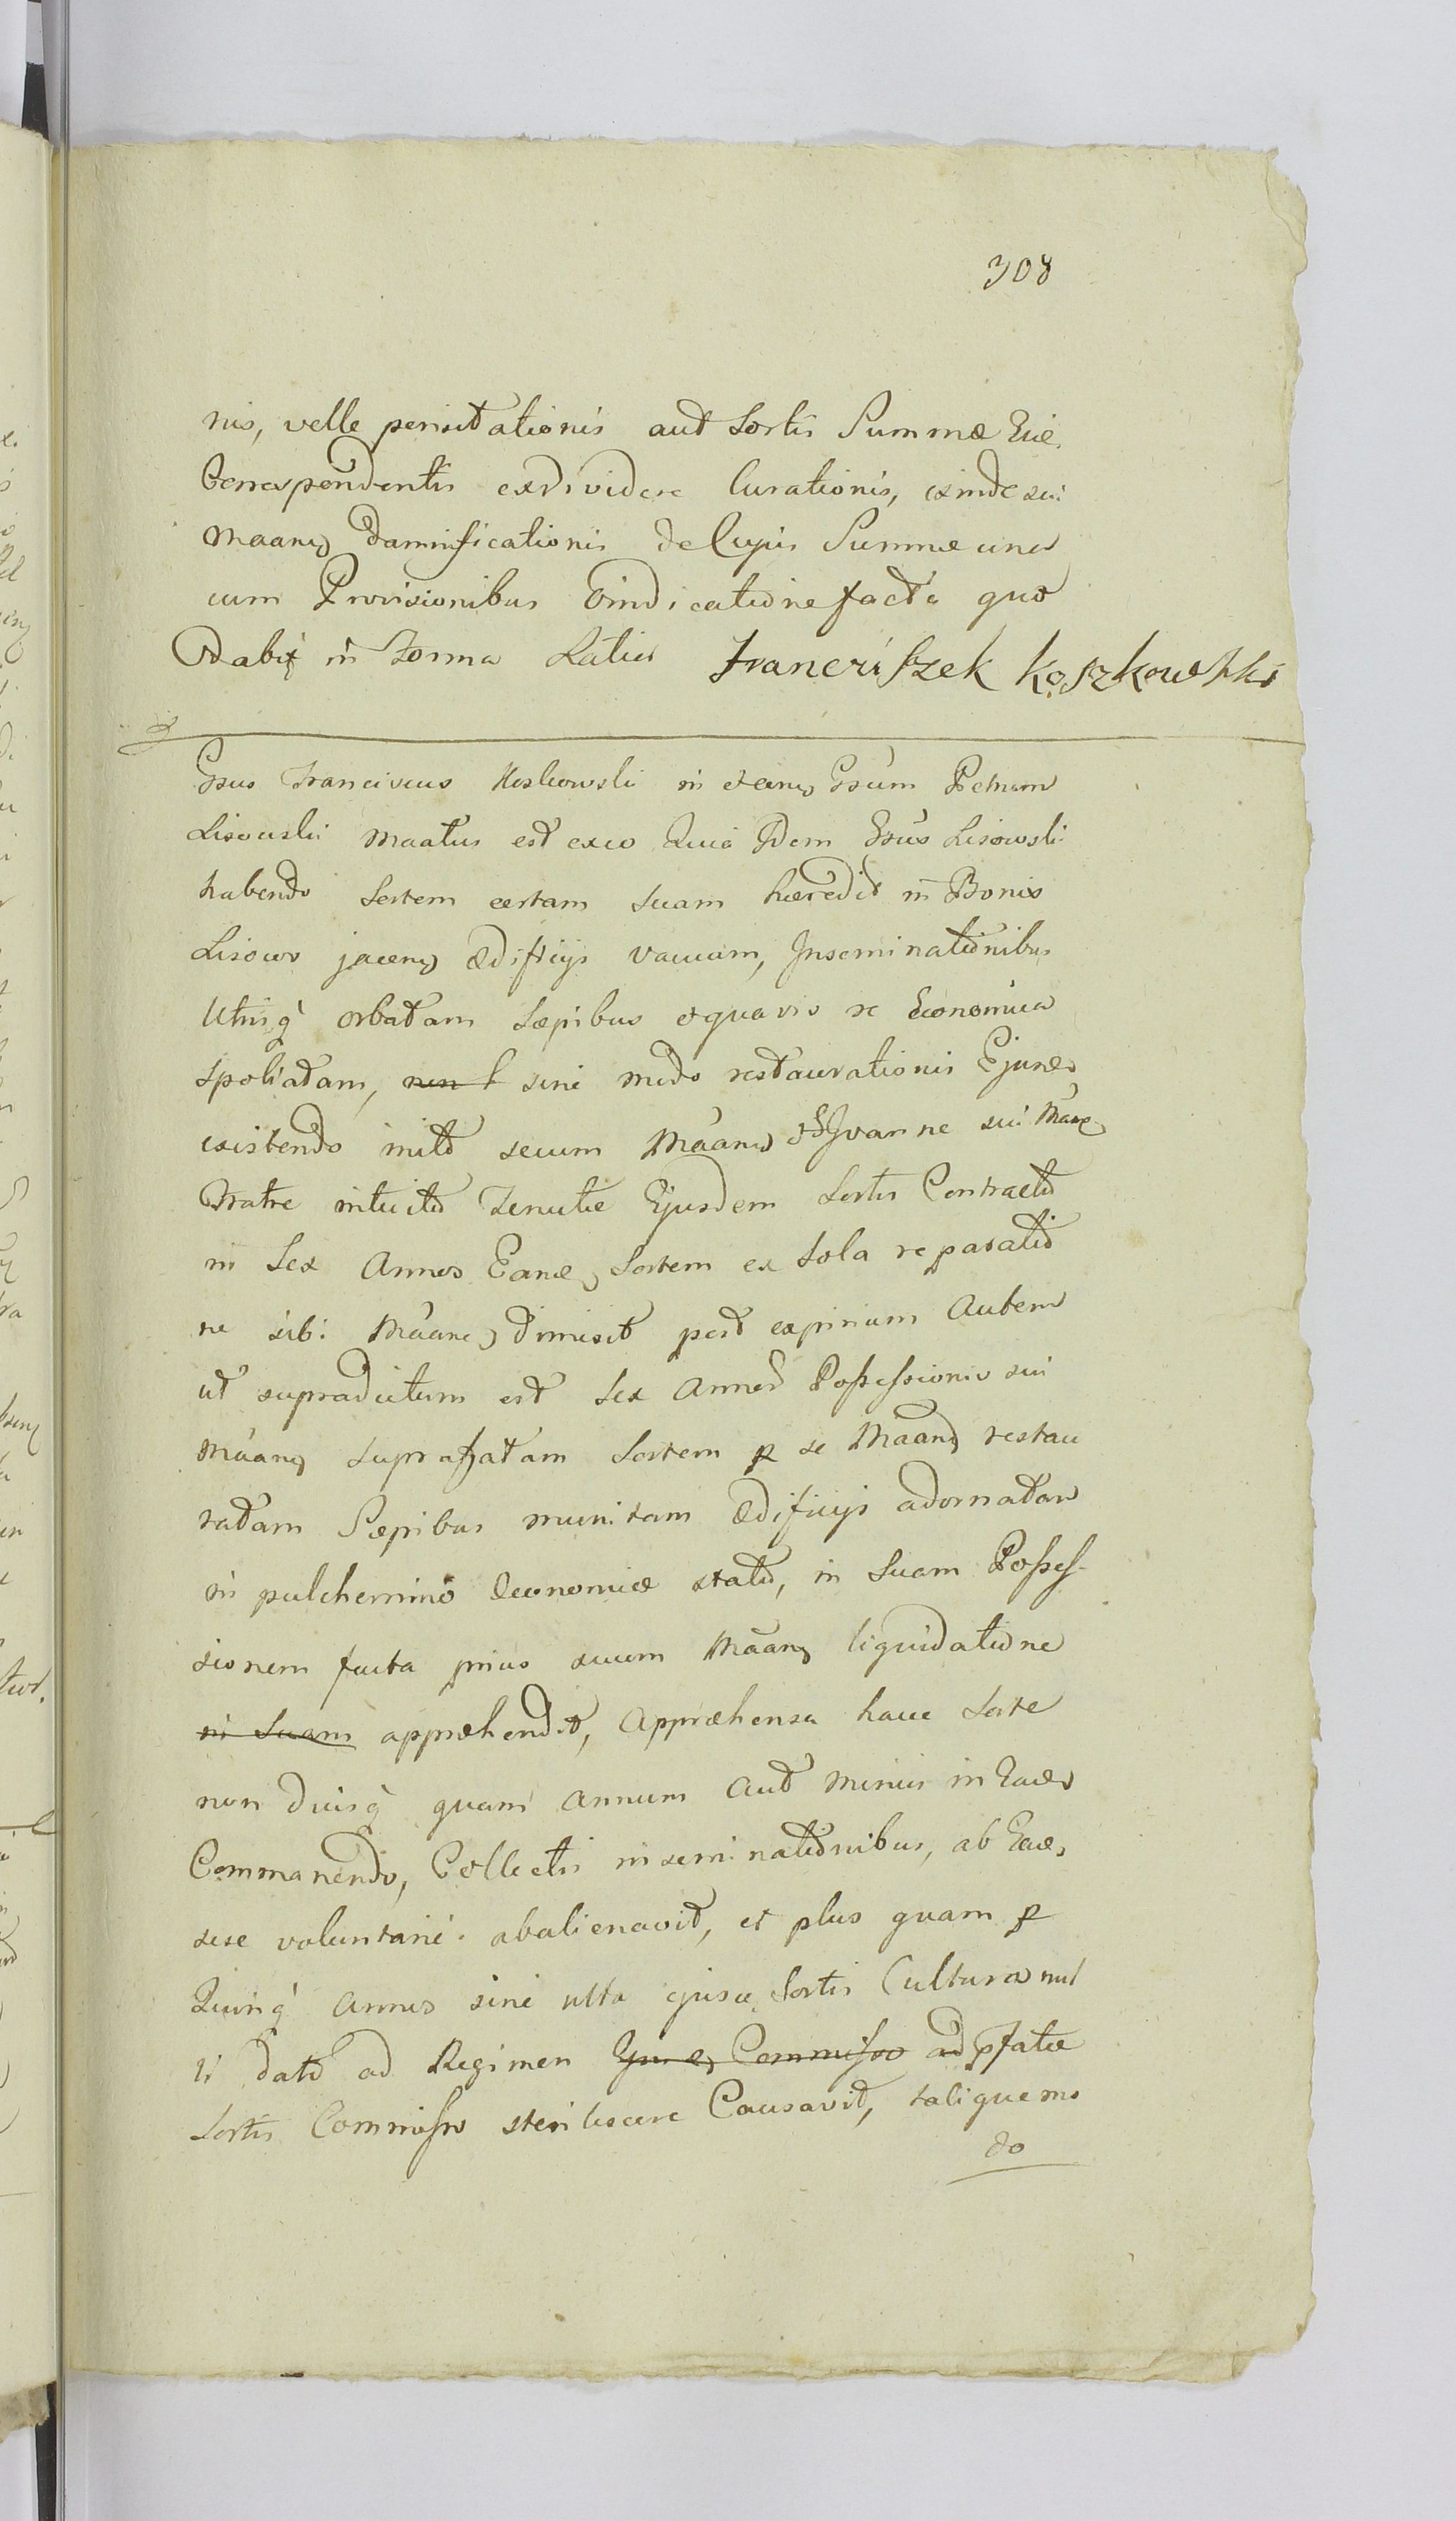 308
nis, velle pensitationis aut Sortis Summæ Eiæ
Correspondentis exdividere Curationis, exinde sui
Maanes damnificationis de Cujus Summæ una
cum Provisionibus vindicatione facta quo
Dabit in Forma Latius Franciszek Koszkowski
Gsus Franciscus Koskowski in et eums Gsum Petrum
Lisowski Maatus est exeo Quia Idem Gsus Lisowski
habendo Sortem certam suam hæredit in Bonis
Lisowo jacens Ædificijs vacuam, Inseminationibus
Utrisq orbatam Sæpibus et quavis re Economica
Spoliatam, non sine modo restaurationis Ejusdes
existendo inito secum Maans et Joanne sui Maane
Fratre intuitu Tenutæ Ejusdem Sortis Contractu
in Sex Annos Eands Sortem ex Sola reparatio
ne sibi Maane dimisit post expirium Autem
ut supradictum est Sex Annos Possessionis sui
Maans suprafatam Sortem p se Maans restau
ratam Sæpibus munitam Ædificijs adornatam
in pulcherrimo Œconomiæ statu, in Suam Posses-
sionem facta prius secum Maans liquidatione
in Suam appræhendit, Appræhensa hacce Sorte
non diusq quam annum aut minus in Eade
Commanendo, Collectis inseminationibus, ab Eade
sese voluntarie abalienavit, et plus quam p
Quinq Annos sine ulla ejusde Sortis Cultura nul
li dato ad Regimen Commisso ad pfatæ
Sortis Commisso sterilescere Causavit, talique mo
do